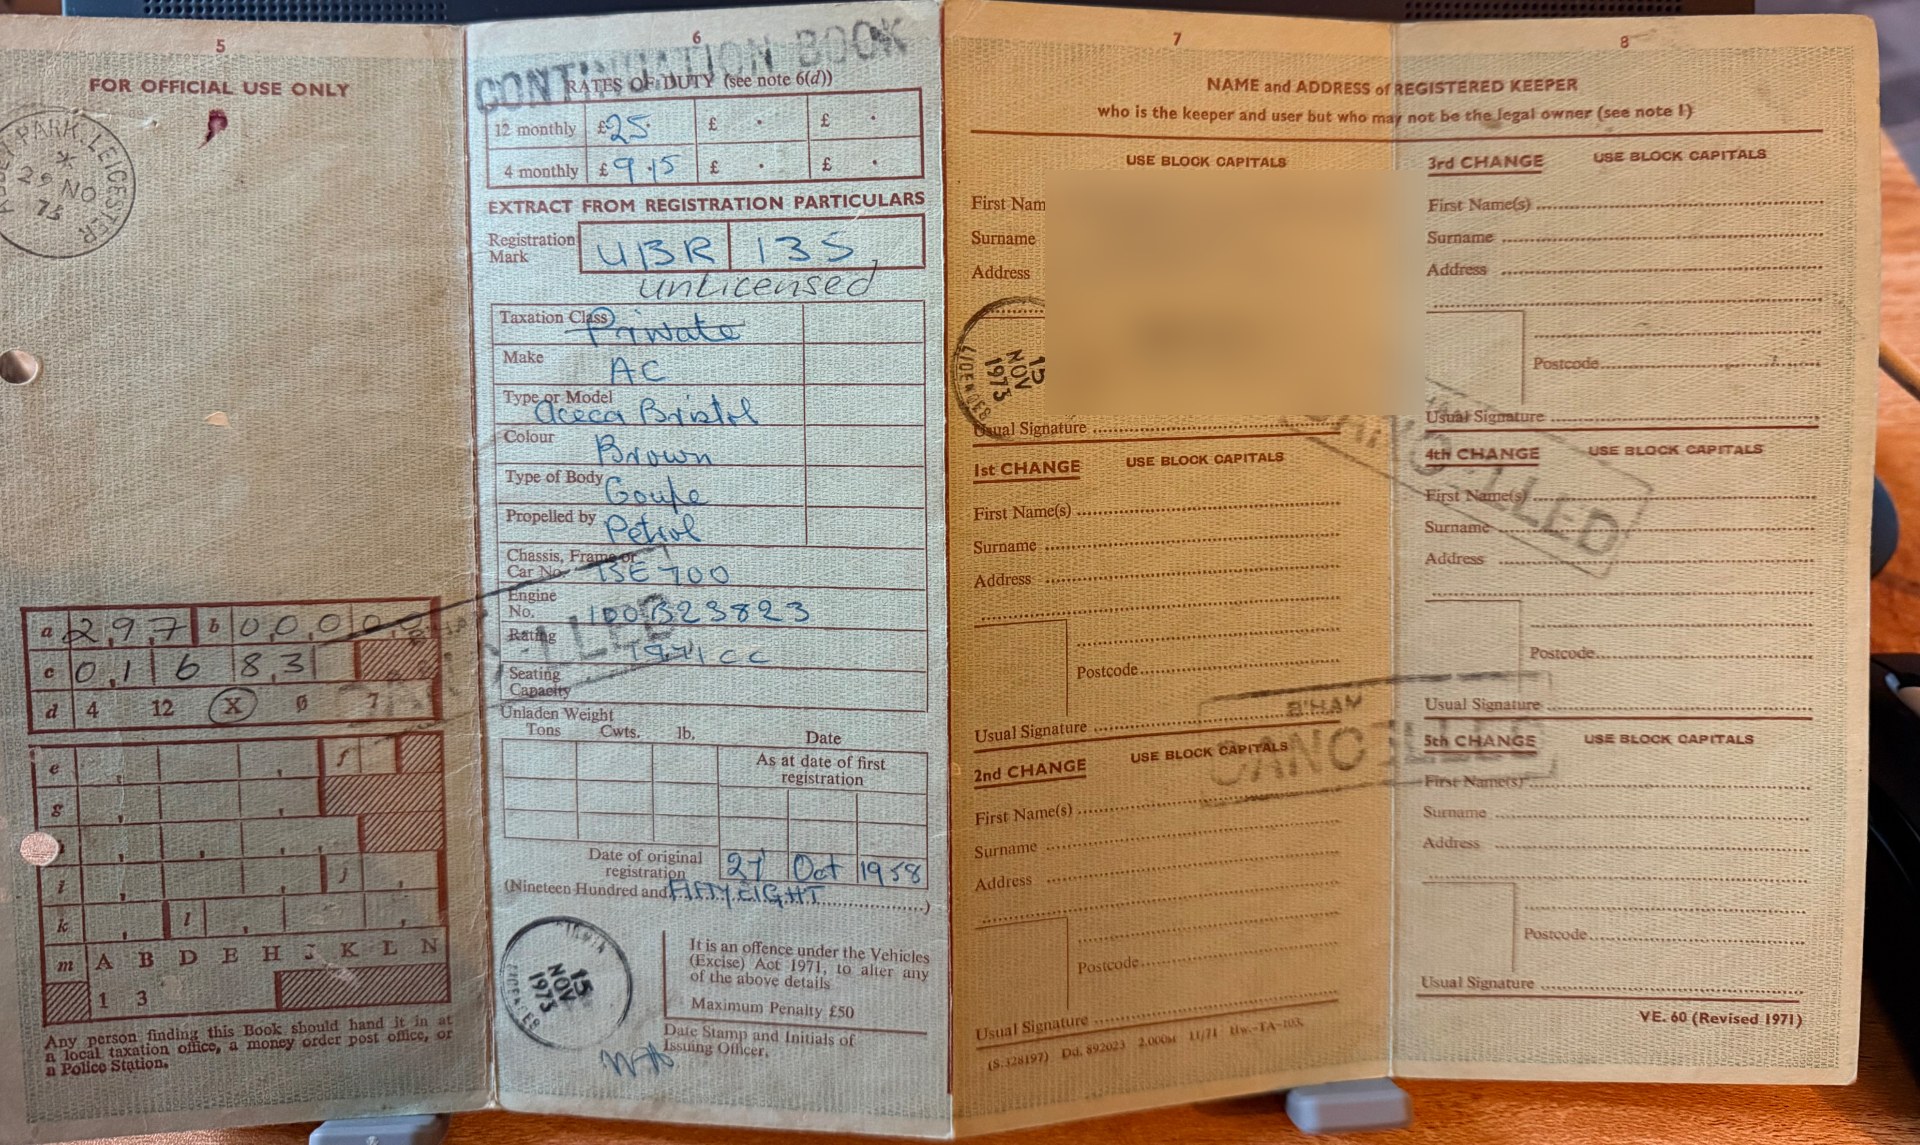 5
FOR OFFICIAL USE ONLY
PARK, LEICESTER
29 NO
75
a 2,9,7 b 0,0,0 0,0
c 0,1 6 8,3
d 4 12 X 0 7
e f
g
i j
k l
m A B D E H J K L N
1 3
Any person finding this Book should hand it in at
a local taxation office, a money order post office, or
a Police Station.
6
CONTINUATION BOOK
RATES OF DUTY (see note 6(d))
12 monthly £25. £ . £ .
4 monthly £9.15 £ . £ .
EXTRACT FROM REGISTRATION PARTICULARS
Registration
Mark UBR 135
unlicensed
Taxation Class Private
Make AC
Type or Model Aceca Bristol
Colour Brown
Type of Body Coupe
Propelled by Petrol
Chassis, Frame or
Car No. BE 700
Engine
No. 100B23823
Rating 1971 CC
Seating
Capacity
CANCELLED
Unladen Weight
Tons Cwts. lb. Date
As at date of first
registration
Date of original
registration 27 Oct 1958
(Nineteen Hundred and FIFTY EIGHT)
15
NOV
1973
It is an offence under the Vehicles
(Excise) Act 1971, to alter any
of the above details
Maximum Penalty £50
Date Stamp and Initials of
Issuing Officer.
7
8
NAME and ADDRESS of REGISTERED KEEPER
who is the keeper and user but who may not be the legal owner (see note 1)
USE BLOCK CAPITALS
First Nam
Surname
Address
15
NOV
1973
Usual Signature
1st CHANGE USE BLOCK CAPITALS
First Name(s)
Surname
Address
Postcode
Usual Signature
2nd CHANGE USE BLOCK CAPITALS
First Name(s)
Surname
Address
Postcode
Usual Signature
(S.328197) Dd. 892023 2,000M 11/71 Hw.-TA-103.
3rd CHANGE USE BLOCK CAPITALS
First Name(s)
Surname
Address
Postcode
Usual Signature
CANCELLED
4th CHANGE USE BLOCK CAPITALS
First Name(s)
Surname
Address
Postcode
Usual Signature
B'HAM
CANCELLED
5th CHANGE USE BLOCK CAPITALS
First Name(s)
Surname
Address
Postcode
Usual Signature
VE. 60 (Revised 1971)